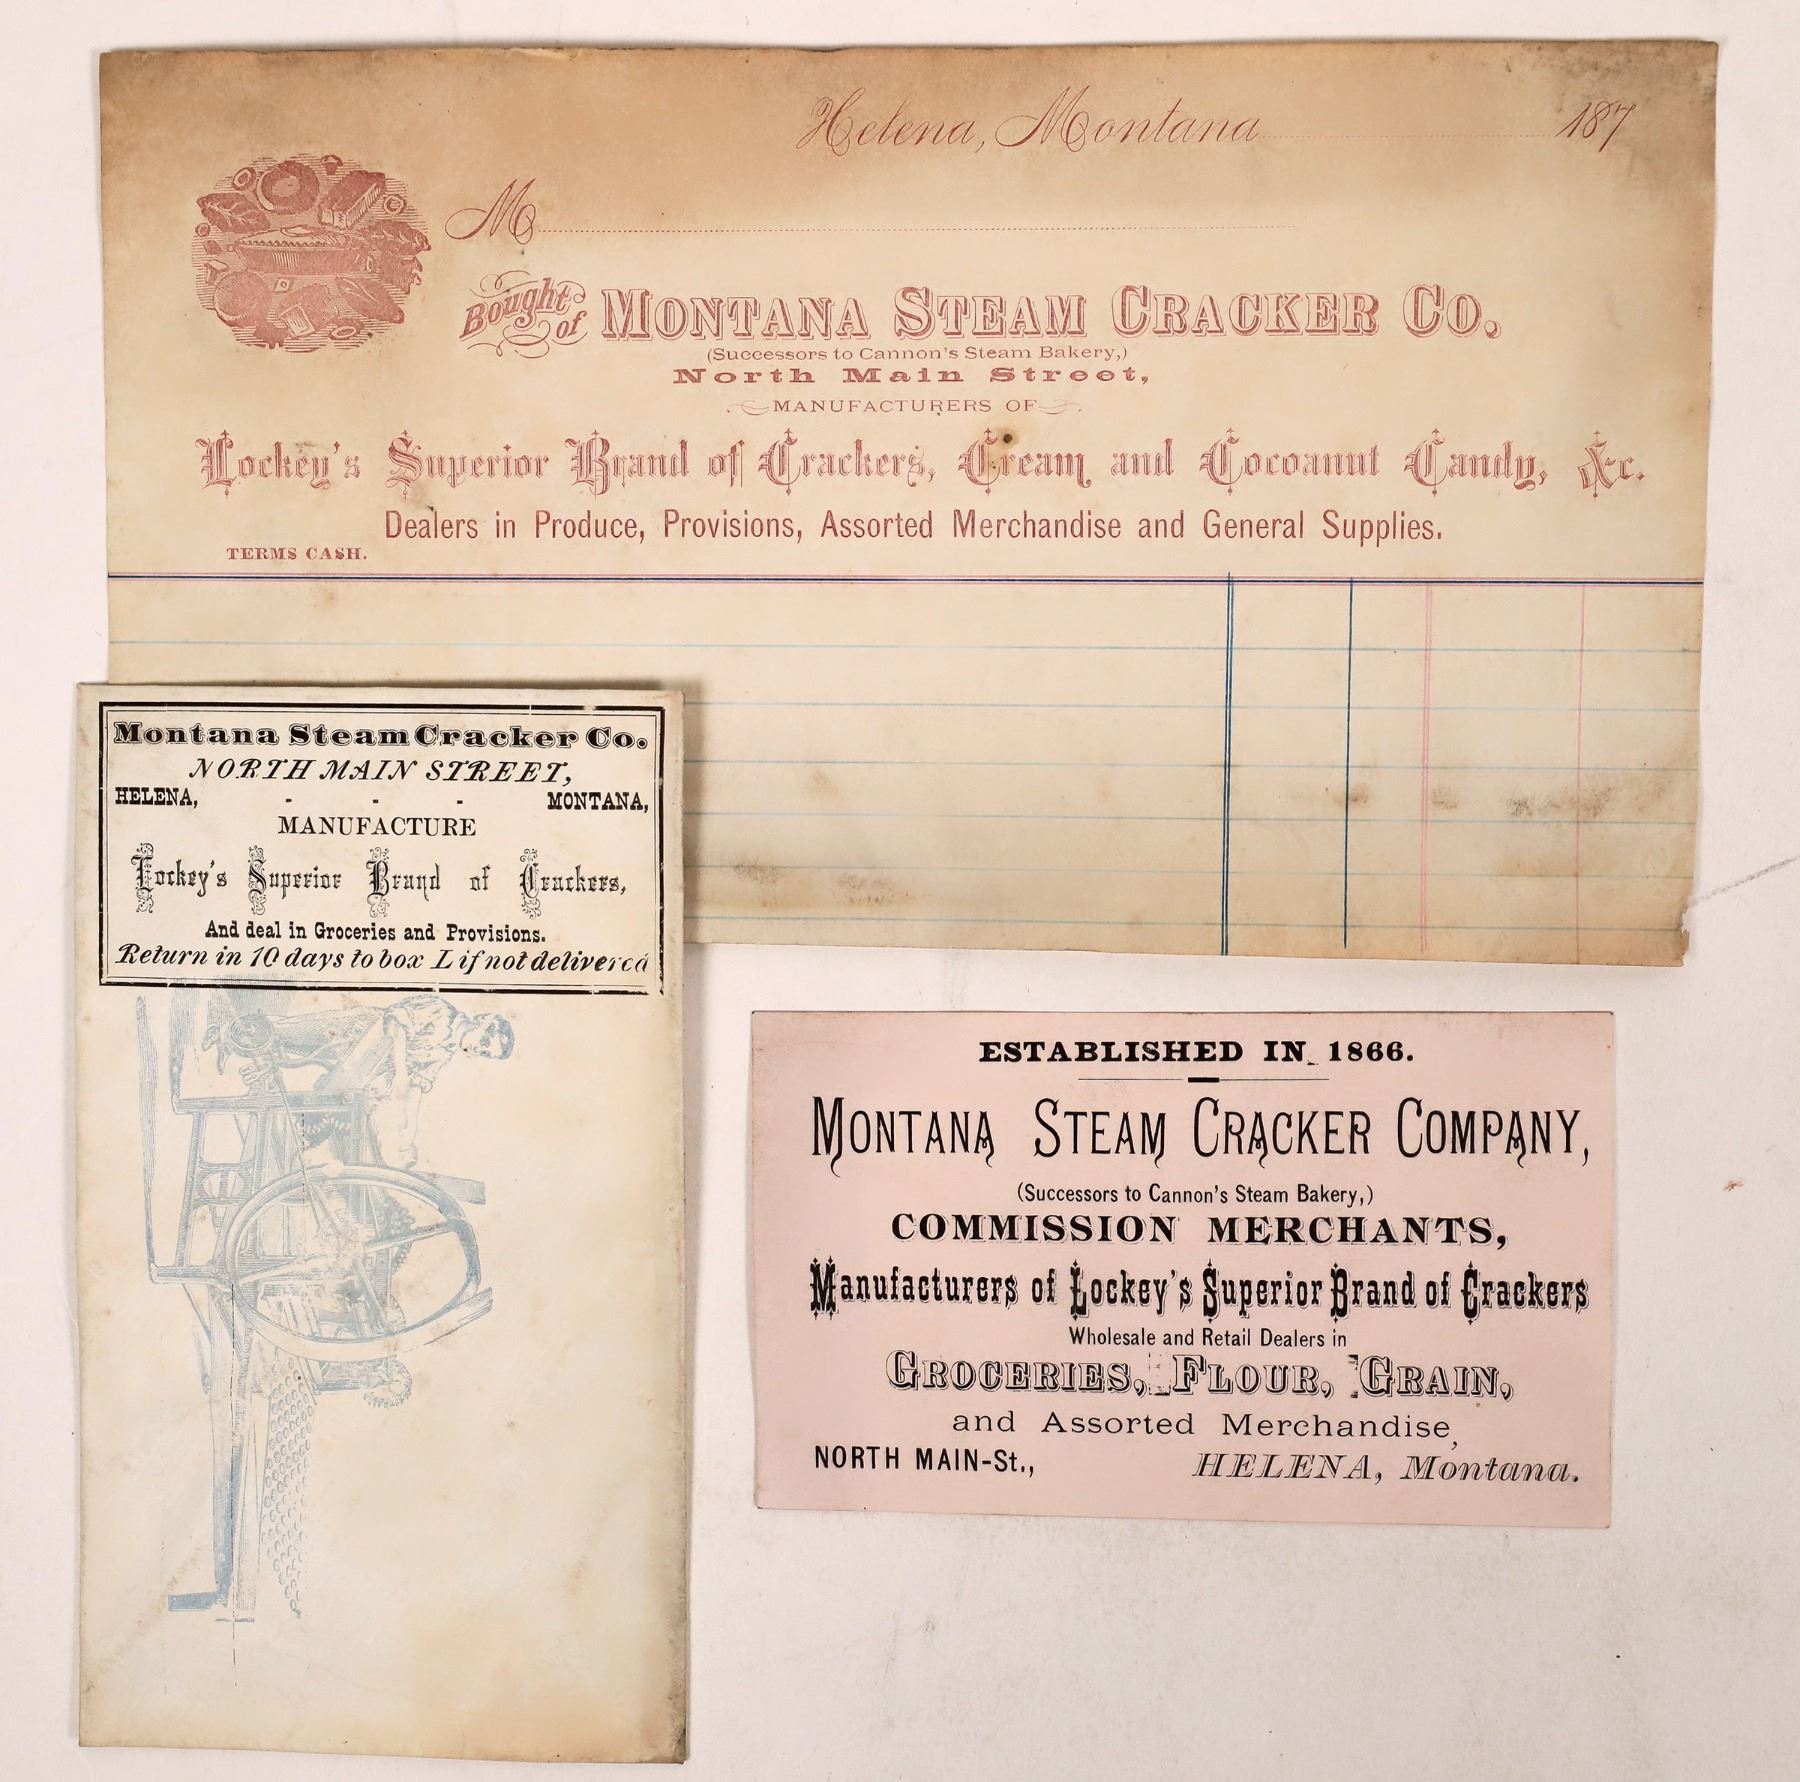 Helena, Montana 187
M
Bought of MONTANA STEAM CRACKER CO.
(Successors to Cannon's Steam Bakery,)
North Main Street,
MANUFACTURERS OF
Lockey's Superior Brand of Crackers, Cream and Cocoanut Candy, &c.
Dealers in Produce, Provisions, Assorted Merchandise and General Supplies.
TERMS CASH.
Montana Steam Cracker Co.
NORTH MAIN STREET,
HELENA, - - - MONTANA,
MANUFACTURE
Lockey's Superior Brand of Crackers,
And deal in Groceries and Provisions.
Return in 10 days to box L if not delivered
ESTABLISHED IN 1866.
MONTANA STEAM CRACKER COMPANY,
(Successors to Cannon's Steam Bakery,)
COMMISSION MERCHANTS,
Manufacturers of Lockey's Superior Brand of Crackers
Wholesale and Retail Dealers in
GROCERIES, FLOUR, GRAIN,
and Assorted Merchandise,
NORTH MAIN-St., HELENA, Montana.